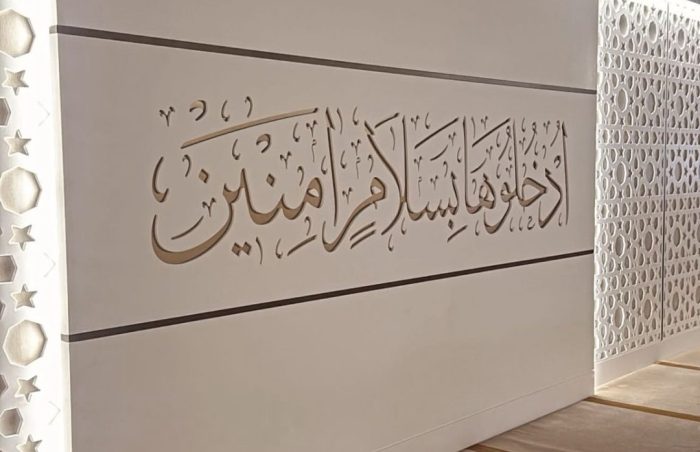 ادْخُلُوهَا بِسَلَامٍ آمِنِينَ